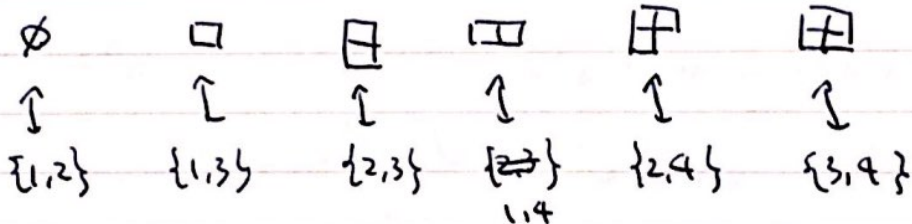 ∅
↕ ↕ ↕ ↕ ↕ ↕
{1,2} {1,3} {2,3} {2,3} {2,4} {3,4}
1,4